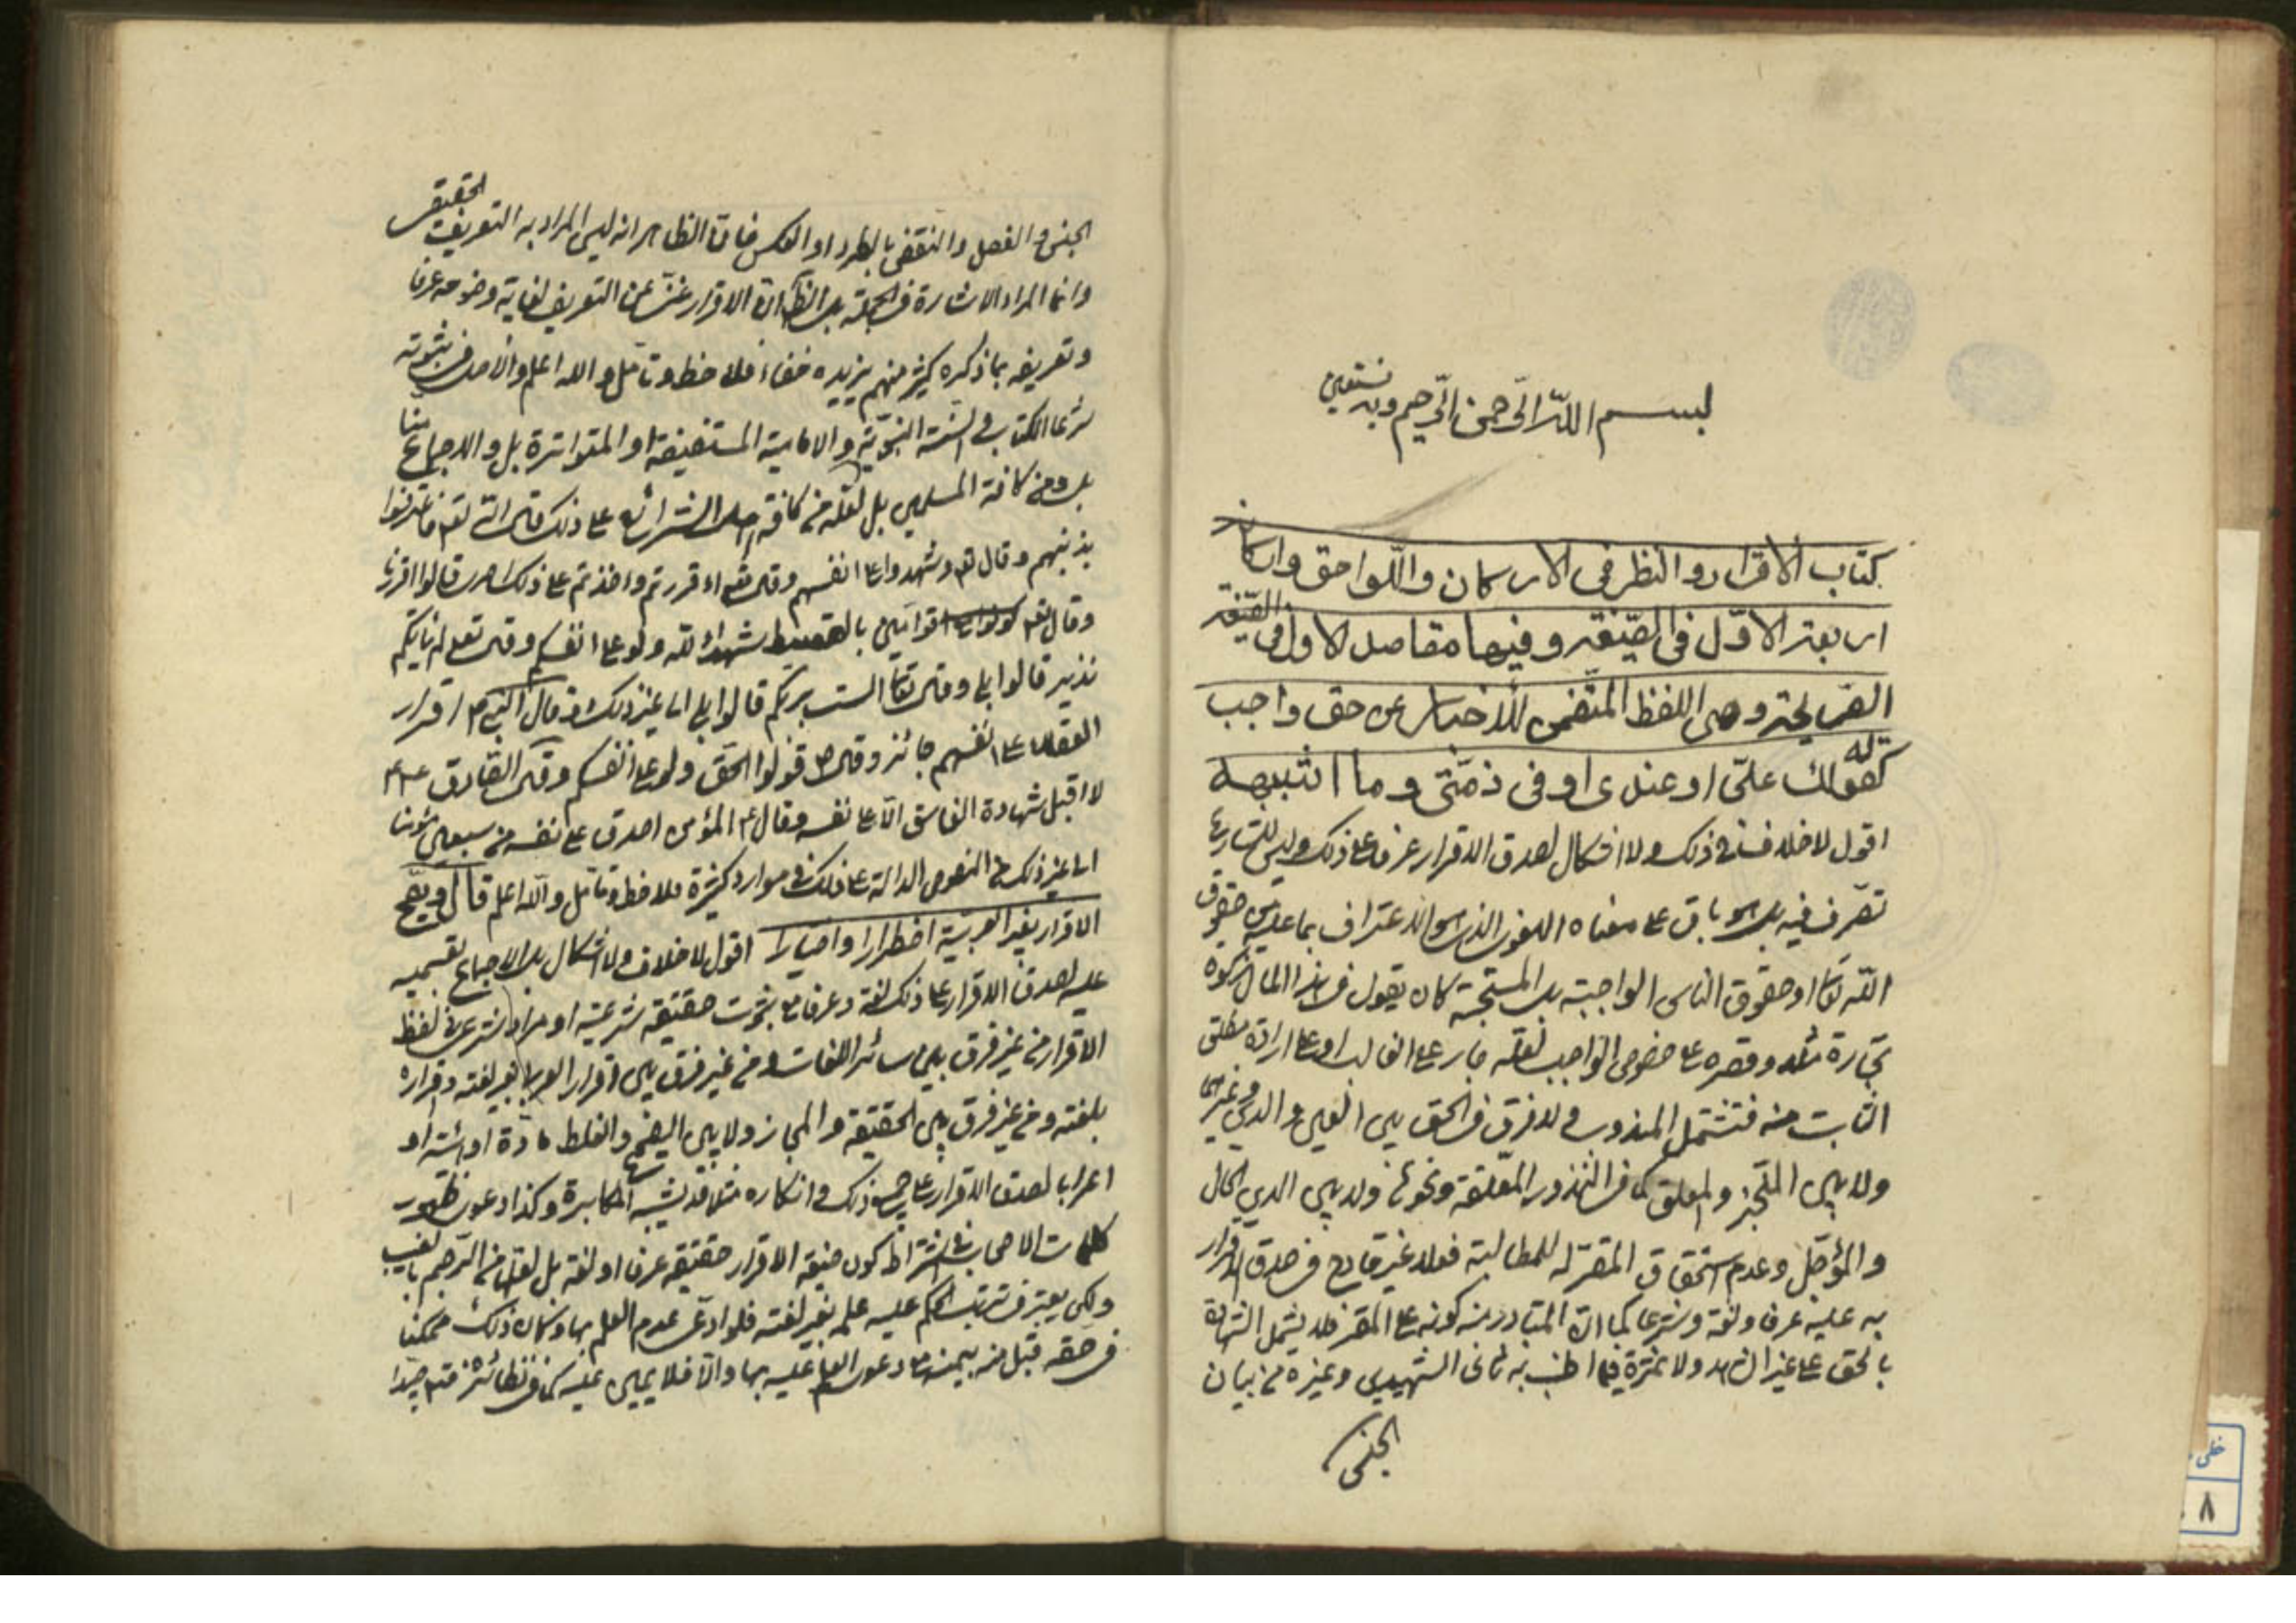 بسم الله الرحمن الرحيم وبه نستعين
كتاب الاقرار والنظر فى الاركان واللواحق واركانه
اربعة الاول فى الصيغة وفيها مقاصد الاول فى الصيغة
الصريحة وهى اللفظ المتضمن للاخبار عن حق واجب
كقوله لك علىّ او عندى او فى ذمتى وما اشبهه
اقول لا خلاف فى ذلك ولا اشكال لصدق الاقرار عرفا على ذلك وليس للشارع
تصرف فيه بل هو باق على معناه اللغوى الذى هو الاعتراف بما عليه من حقوق
الله تعالى او حقوق الناس الواجبة بل المستحبة كان يقول فى هذا المال زكوة
تجارة مثلا وقصره على خصوص الواجب لعله جار على الغالب او على ارادة مطلق
الثابت منه فتشمل المندوب ولا فرق فى الحق بين العين والدين وغيرهما
ولا بين المنجز والمعلق كما فى النذور المعلقة ونحوها ولا بين الدين الحال
والمؤجل وعدم استحقاق المقر له للمطالبة فعلا غير قادح فى صدق الاقرار
به عليه عرفا ولغة وشرعا كما ان المتبادر منه كونه على المقر فلا يشمل الشهادة
بالحق على غير الشاهد ولا ثمرة فيما اطنب به ثانى الشهيدين وغيره من بيان
الجنس
الجنس والفصل والنقض بالطرد او العكس ضرورة ان الظاهر انه ليس المراد به التعريف الحقيقى
وانما المراد الاشارة فى الجملة بل الظ ان الاقرار غنى عن التعريف لغاية وضوحه عرفا
وتعريفه بما ذكره كثير منهم يزيده خفاء فلاحظ وتامل والله اعلم والاصل فى ثبوته
شرعا الكتاب والسنة النبوية والامامية المستفيضة او المتواترة بل والاجماع منا
بل ومن كافة المسلمين بل لعله من كافة اهل الشرائع على ذلك قال الله تعالى فاعترفوا
بذنبهم وقال تعالى وشهدوا على انفسهم وقال تعالى ءاقررتم واخذتم على ذلكم اصرى قالوا اقررنا
وقال تعالى كونوا قوامين بالقسط شهداء لله ولو على انفسكم وقال تعالى الم ياتكم
نذير قالوا بلى وقال تعالى الست بربكم قالوا بلى الى غير ذلك وقال النبى ص اقرار
العقلاء على انفسهم جائز وقال ص قولوا الحق ولو على انفسكم وقال الصادق ع
لا اقبل شهادة الفاسق الا على نفسه وقال ع المؤمن اصدق على نفسه من سبعين مؤمنا
الى غير ذلك من النصوص الدالة على ذلك فى موارد كثيرة فلاحظ وتامل والله اعلم قال ويصح
الاقرار بغير العربية اضطرارا واختيارا اقول لا خلاف ولا اشكال بل الاجماع بقسميه
عليه لصدق الاقرار على ذلك لغة وعرفا مع ثبوت حقيقة شرعية او مراد شرعى فى لفظ
الاقرار من غير فرق بين سائر اللغات ومن غير فرق بين اقرار العربى بغير لغته واقراره
بلغته ومن غير فرق بين الحقيقة والمجاز ولا بين الفصيح والغلط مادة او هيئة او
اعرابا لصدق الاقرار على جميع ذلك وانكاره مثلا قد يشبه المكابرة وكذا دعوى ظهور
كلمات الاصحاب فى اشتراط كون صيغة الاقرار حقيقة عرفا او لغة بل لعلها من الرجم بالغيب
ولكن يعتبر فى ترتب الحكم عليه علمه بغير لغته فلو ادعى عدم العلم بها وكان ذلك ممكنا
فى حقه قبل منه بيمينه مع دعوى العلم عليه بها والا فلا يمين عليه كما فى نظائره فتدبر جيدا